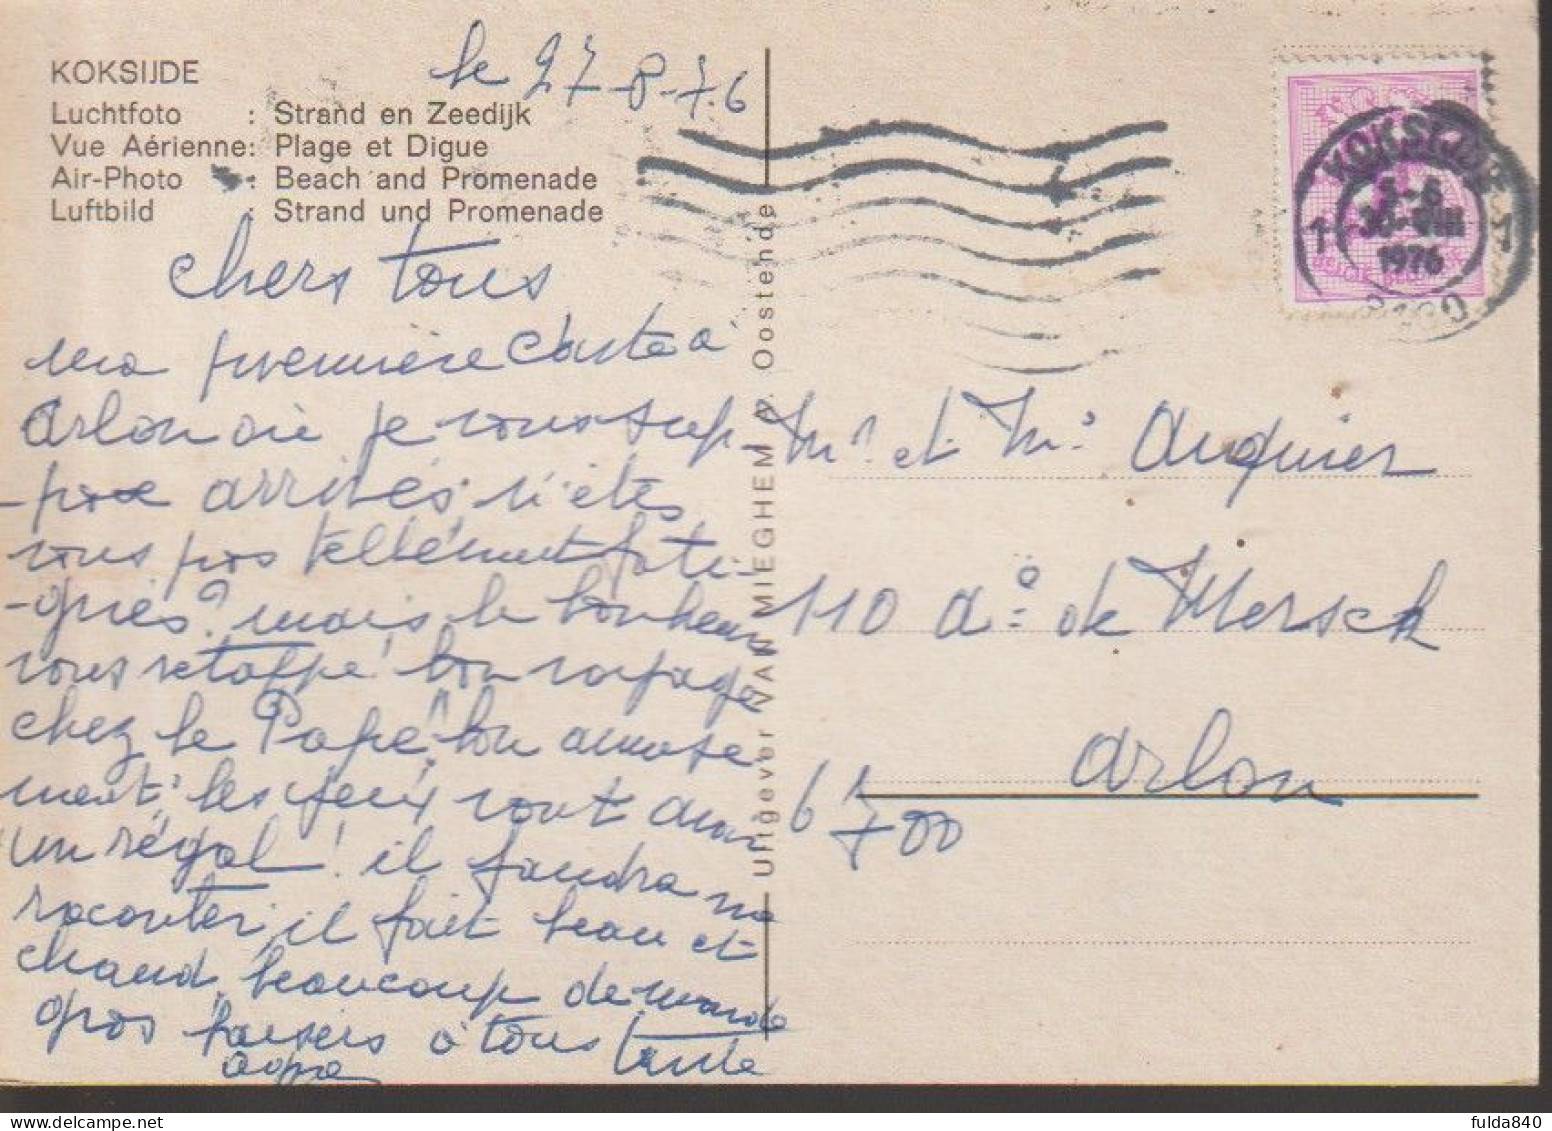 KOKSIJDE
Luchtfoto : Strand en Zeedijk
Vue Aérienne: Plage et Digue
Air-Photo : Beach and Promenade
Luftbild : Strand und Promenade
le 27-8-76
chers tous
ma première carte à
Arlon où je vous sup-
-pose arrivés n'êtes
vous pas tellement fati-
-gués? mais le bonheur
vous retappé! bon voyage
chez le Pape! bon amuse
ment, les jeux vont
un régal! il faudra
raconter, il fait beau et
chaud, beaucoup de monde
gros baisers à tous tante
Uitgever VAN MIEGHEM A. Oostende
KOKSIJDE
1976
Mr et Me Auquier
110 de Mersch
Arlon
6700
fulda840